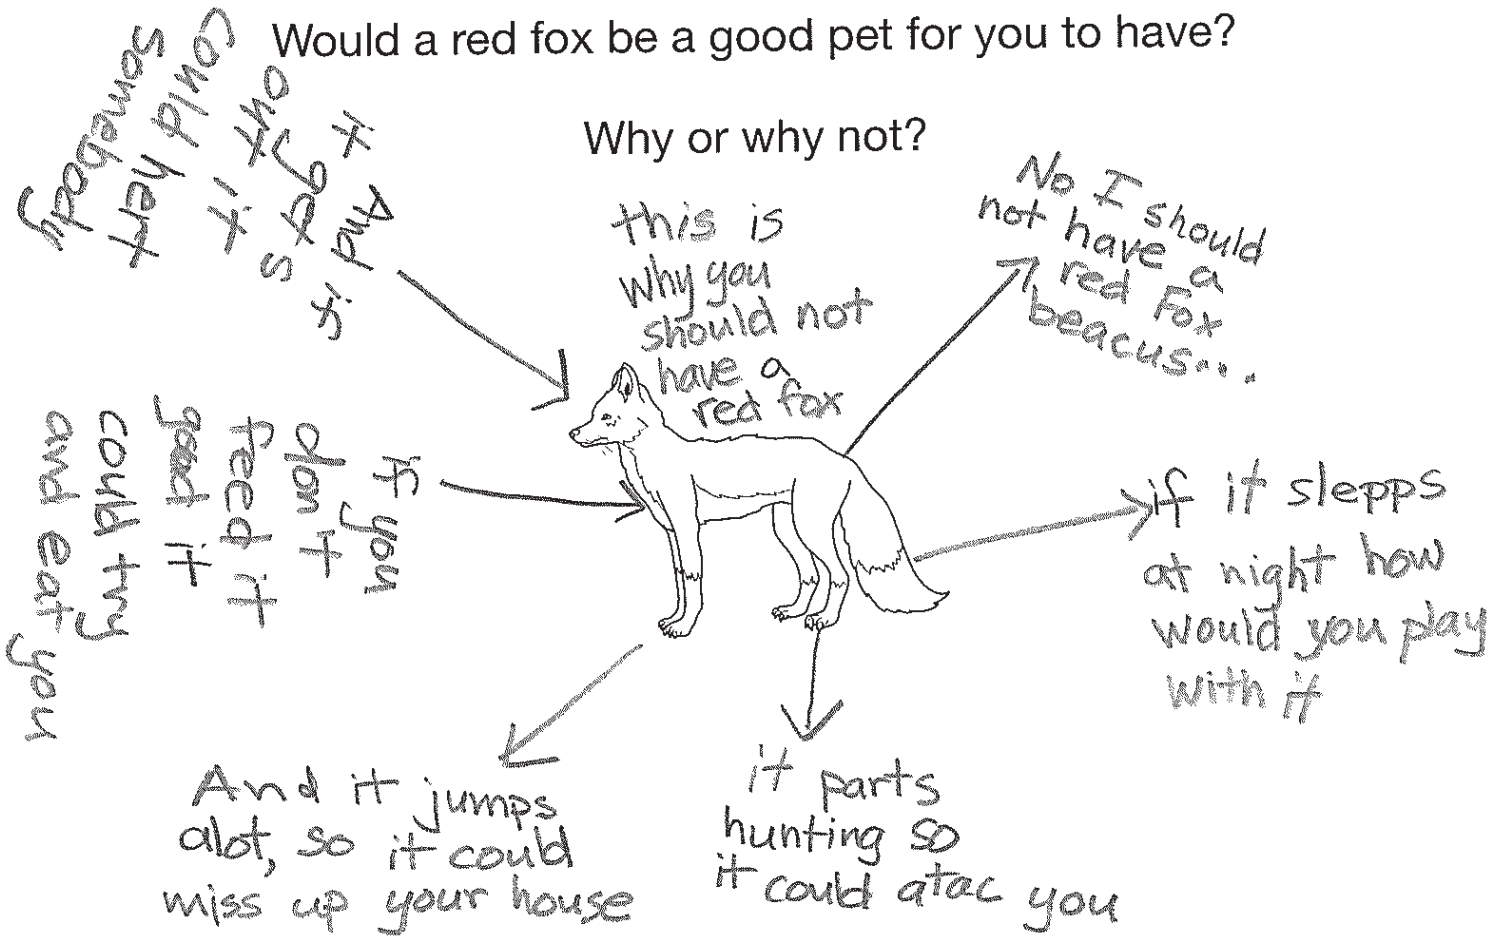 Would a red fox be a good pet for you to have?
Why or why not?
this is
why you
should not
have a
red fox
No I should
not have a
red Fox
beacus...
if it slepps
at night how
would you play
with it
it parts
hunting so
it could atac you
And it jumps
alot, so it could
miss up your house
if you
don t
feed it
good it
could try
and eat you
And if
it gets
out it
could hert
somebody